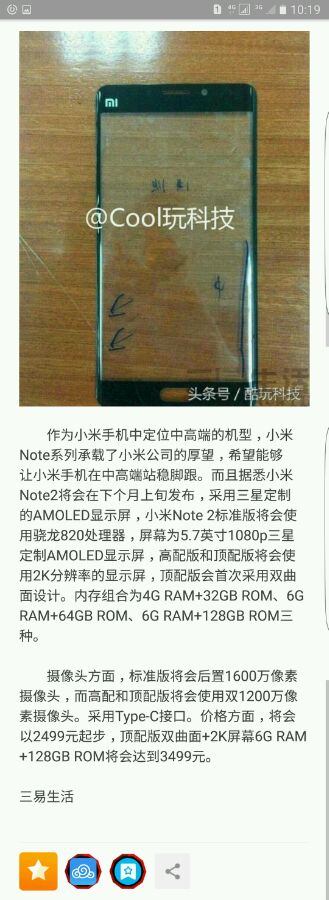 1 4G 3G 10:19
mi
@Cool玩科技
头条号 / 酷玩科技
作为小米手机中定位中高端的机型，小米
Note系列承载了小米公司的厚望，希望能够
让小米手机在中高端站稳脚跟。而且据悉小米
Note2将会在下个月上旬发布，采用三星定制
的AMOLED显示屏，小米Note 2标准版将会使
用骁龙820处理器，屏幕为5.7英寸1080p三星
定制AMOLED显示屏，高配版和顶配版将会使
用2K分辨率的显示屏，顶配版会首次采用双曲
面设计。内存组合为4G RAM+32GB ROM、6G
RAM+64GB ROM、6G RAM+128GB ROM三
种。
摄像头方面，标准版将会后置1600万像素
摄像头，而高配和顶配版将会使用双1200万像
素摄像头。采用Type-C接口。价格方面，将会
以2499元起步，顶配版双曲面+2K屏幕6G RAM
+128GB ROM将会达到3499元。
三易生活